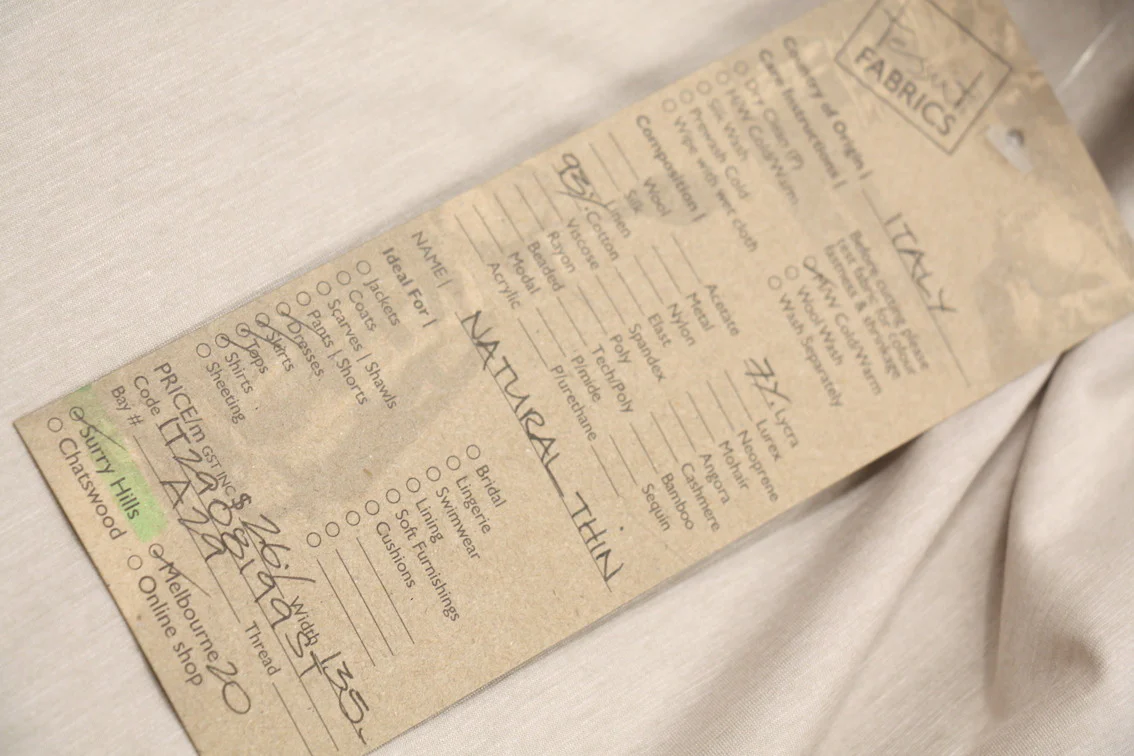 FABRICS
Country of Origin | ITALY
Care Instructions |
Before cutting please
test fabric for colour
fastness & shrinkage
Dry Clean (P)
H/W Cold/Warm
Silk Wash
Prewash Cold
Wipe with wet cloth
M/W Cold/Warm
Wool Wash
Wash Separately
Composition |
Wool
Silk
Linen
93% Cotton
Viscose
Rayon
Beaded
Modal
Acrylic
Acetate
Metal
Nylon
Elast
Spandex
Poly
Tech/Poly
P/mide
P/urethane
7% Lycra
Lurex
Neoprene
Mohair
Angora
Cashmere
Bamboo
Sequin
NAME | NATURAL THIN
Ideal For |
Jackets
Coats
Scarves | Shawls
Pants | Shorts
Dresses
Skirts
Tops
Shirts
Sheeting
Bridal
Lingerie
Swimwear
Lining
Soft Furnishings
Cushions
PRICE/m GST INC $ 26 Width 135
Code
Bay # A29 Thread
Surry Hills
Chatswood
Melbourne 20
Online shop